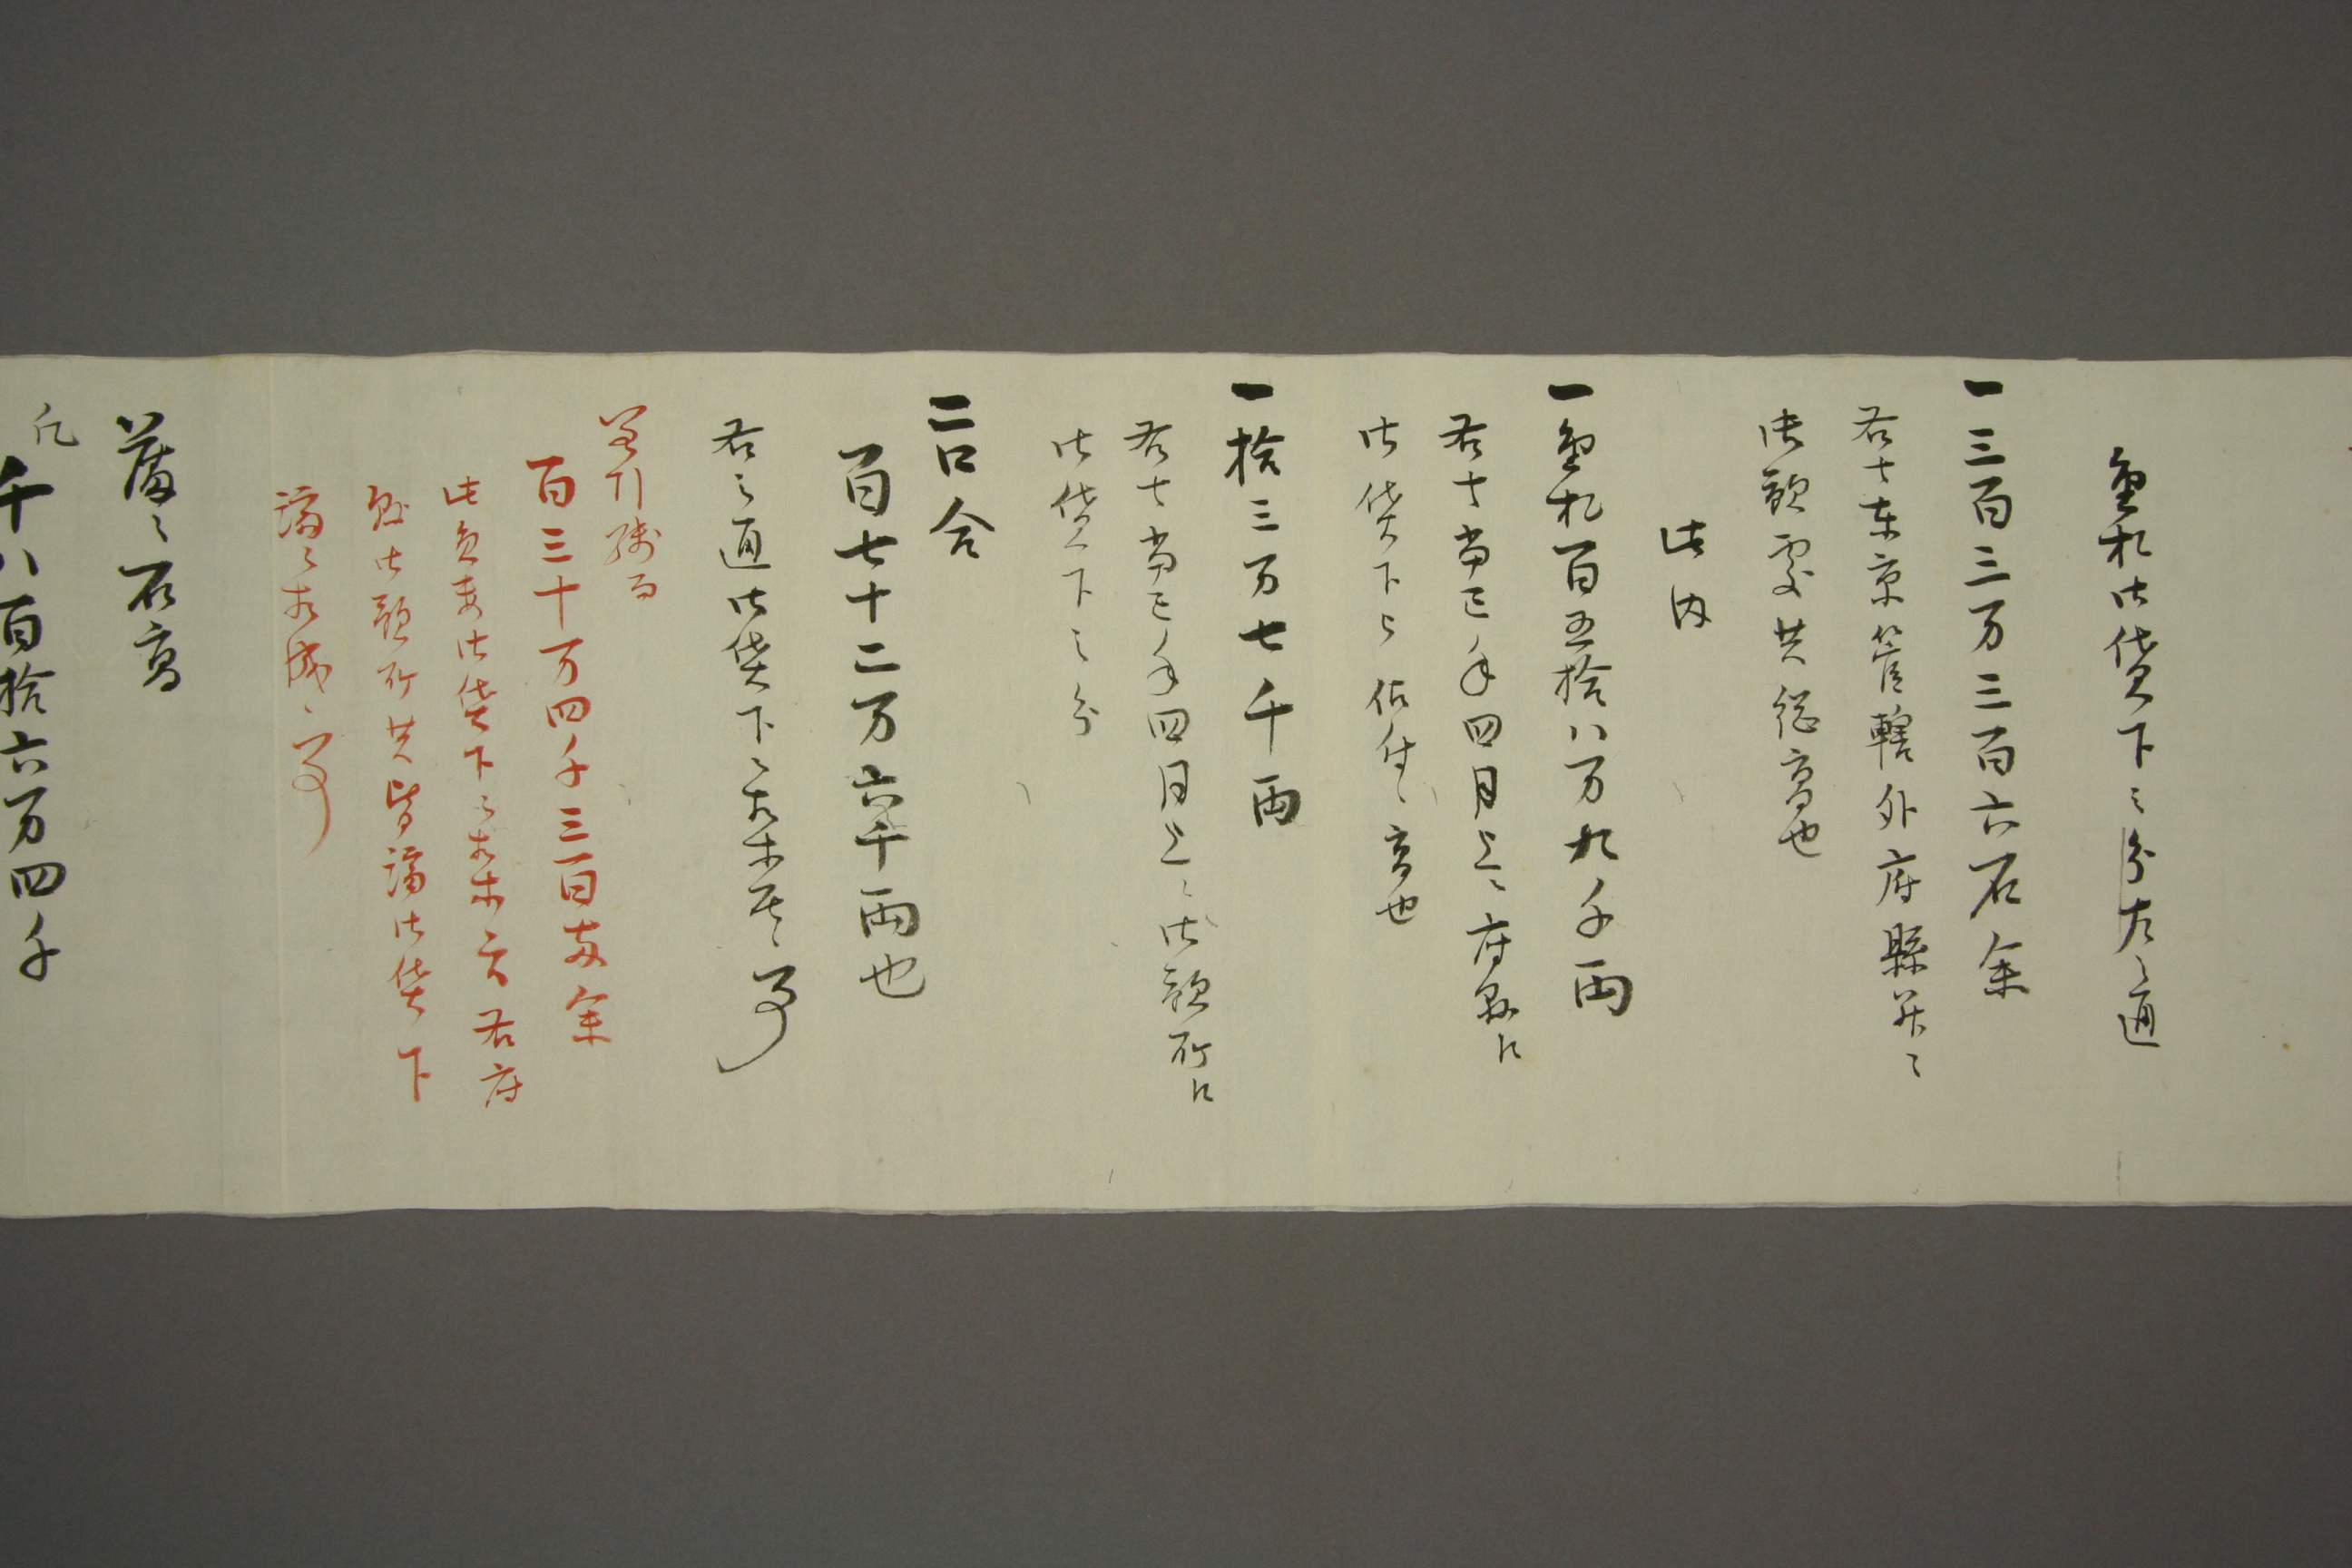 金札御貸下之分左之通
一三百三万三百六石余
右者東京管轄外府縣并ニ
御預處共総高也
此内
一金札百五拾八万九千両
右者当巳年四月迄ニ府縣江
御貸下被仰付候高也
一拾三万七千両
右者当巳年四月迄ニ御預所江
御貸下之分
二口合
百七十二万六千両也
右之通御貸下ニ相成候事
差引残而
百三十万四千三百両余
此員数御貸下ニ相成候ハヽ右府
縣御預所共皆済御貸下
済ニ相成候事
藩之石高
凡
千八百拾六万四千